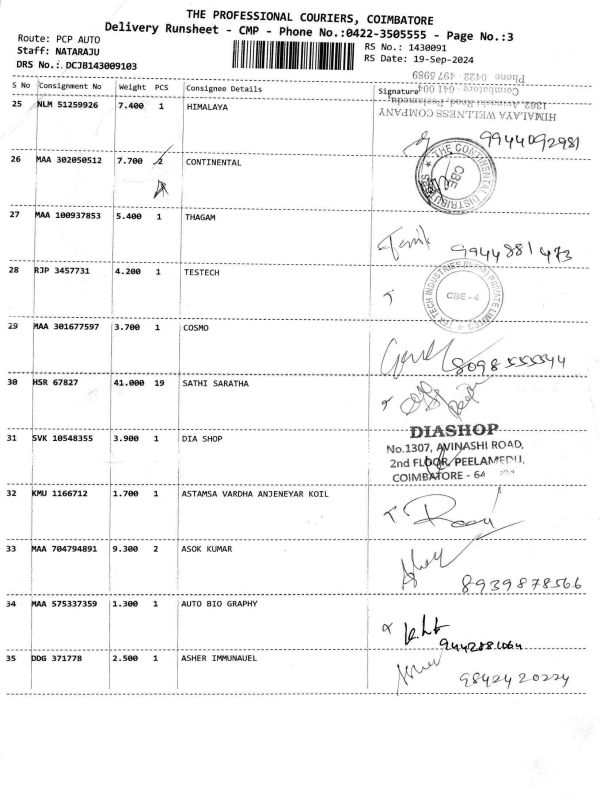 THE PROFESSIONAL COURIERS, COIMBATORE
Delivery Runsheet - CMP - Phone No.:0422-3505555 - Page No.:3
Route: PCP AUTO
RS No.: 1430091
Staff: NATARAJU
RS Date: 19-Sep-2024
DRS No.: DCJB143009103
S No Consignment No Weight PCS Consignee Details Signature
HIMALAYA WELLNESS COMPANY
1362, Avinashi Road, Peelamedu,
Coimbatore - 641 004
Phone 0422 - 497 6989
25 NLM 51259926 7.400 1 HIMALAYA
9944092981
26 MAA 302050512 7.700 2 CONTINENTAL
THE CONTINENTAL DISTRIBUTORS
CBE
27 MAA 100937853 5.400 1 THAGAM
9944881473
28 RJP 3457731 4.200 1 TESTECH
CBE - 4
29 MAA 301677597 3.700 1 COSMO
8098555544
30 HSR 67827 41.000 19 SATHI SARATHA
31 SVK 10548355 3.900 1 DIA SHOP
DIASHOP
No.1307, AVINASHI ROAD,
2nd FLOOR, PEELAMEDU,
COIMBATORE - 64
32 KMU 1166712 1.700 1 ASTAMSA VARDHA ANJENEYAR KOIL
33 MAA 704794891 9.300 2 ASOK KUMAR
8939878566
34 MAA 575337359 1.300 1 AUTO BIO GRAPHY
9442881064
35 DDG 371778 2.500 1 ASHER IMMUNAUEL
9842420224